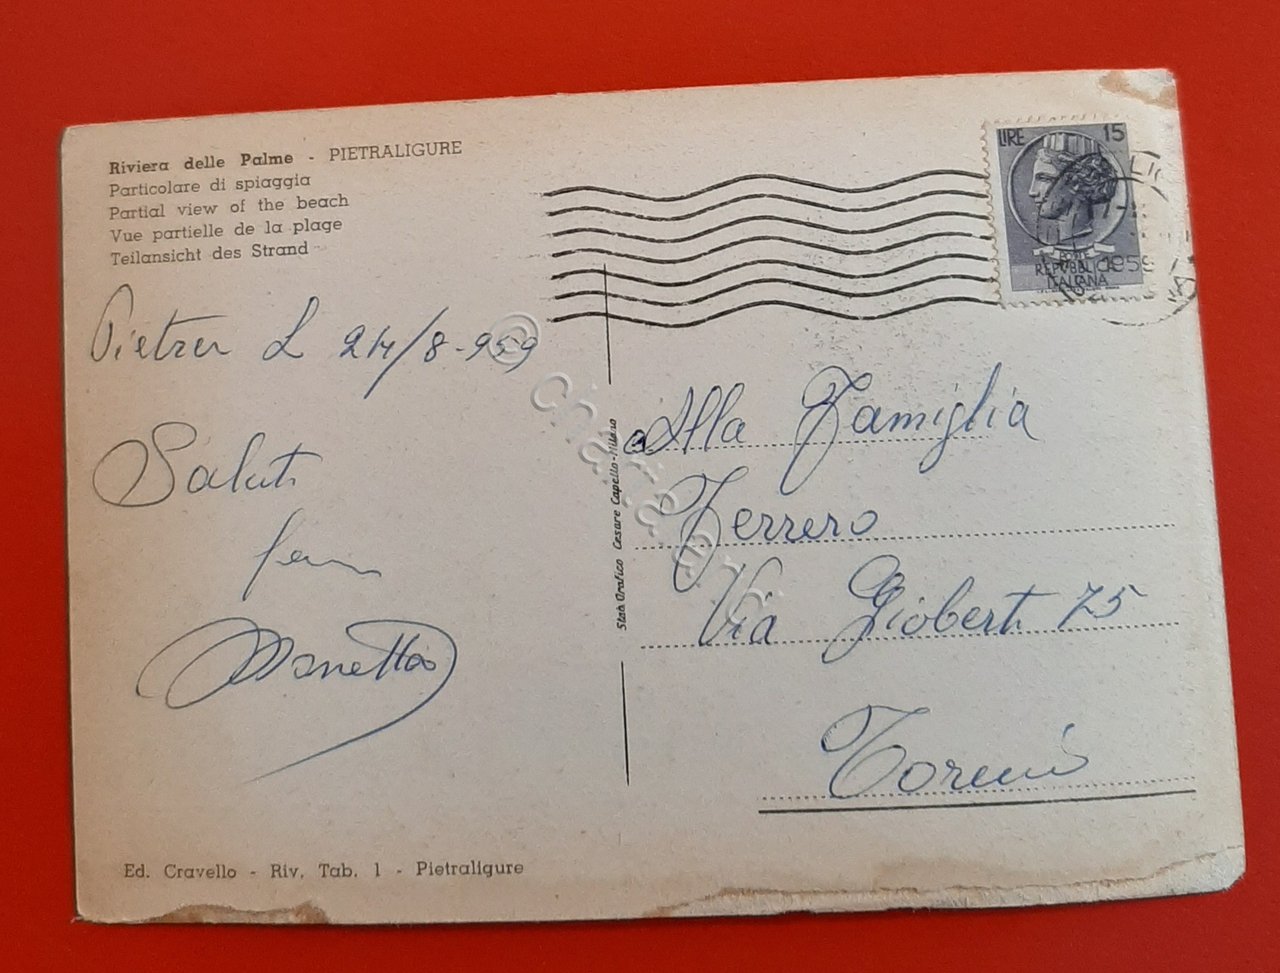 Riviera delle Palme - PIETRALIGURE
Particolare di spiaggia
Partial view of the beach
Vue partielle de la plage
Teilansicht des Strand
LIRE 15
POSTE
REPVBBLICA
ITALIANA
1959
Pietra L 24/8-959
Saluti
Alla Famiglia
Ferrero
Via Gioberti 75
Torino
Stab. Grafico Cesare Capello - Milano
Ed. Cravello - Riv. Tab. 1 - Pietraligure